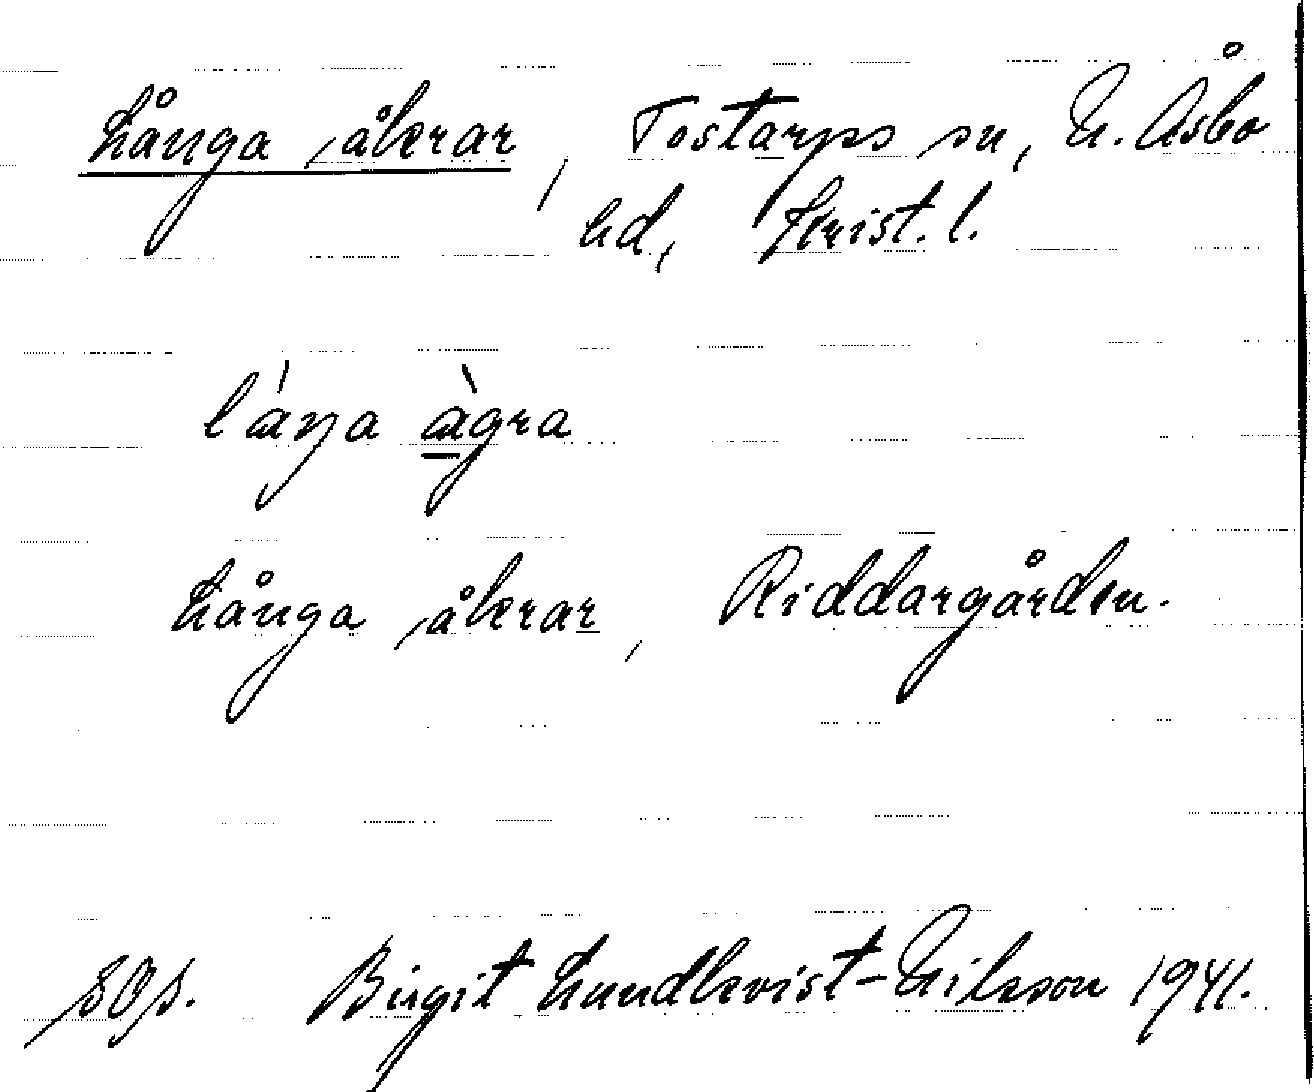 Långa åkrar, Tostarps sn, N. Åsbo
hd, Krist. l.
láŋa àgra
Långa åkrar, Riddargården.
Birgit Lundkvist-Nilsson 1941.